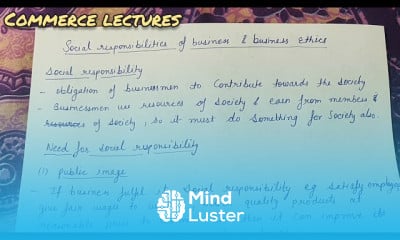 COMMERCE LECTURES
Social responsibilities of business & business ethics
Social responsibility
- obligation of businessmen to contribute towards the society
- Businessmen use resources of society & earn from members &
resources of society, so it must do something for society also.
Need for social responsibility
(1) public image
- If business fulfil it social responsibility eg satisfy employees
give fair wages to quality products at
reasonable it can improve its
Mind
Luster